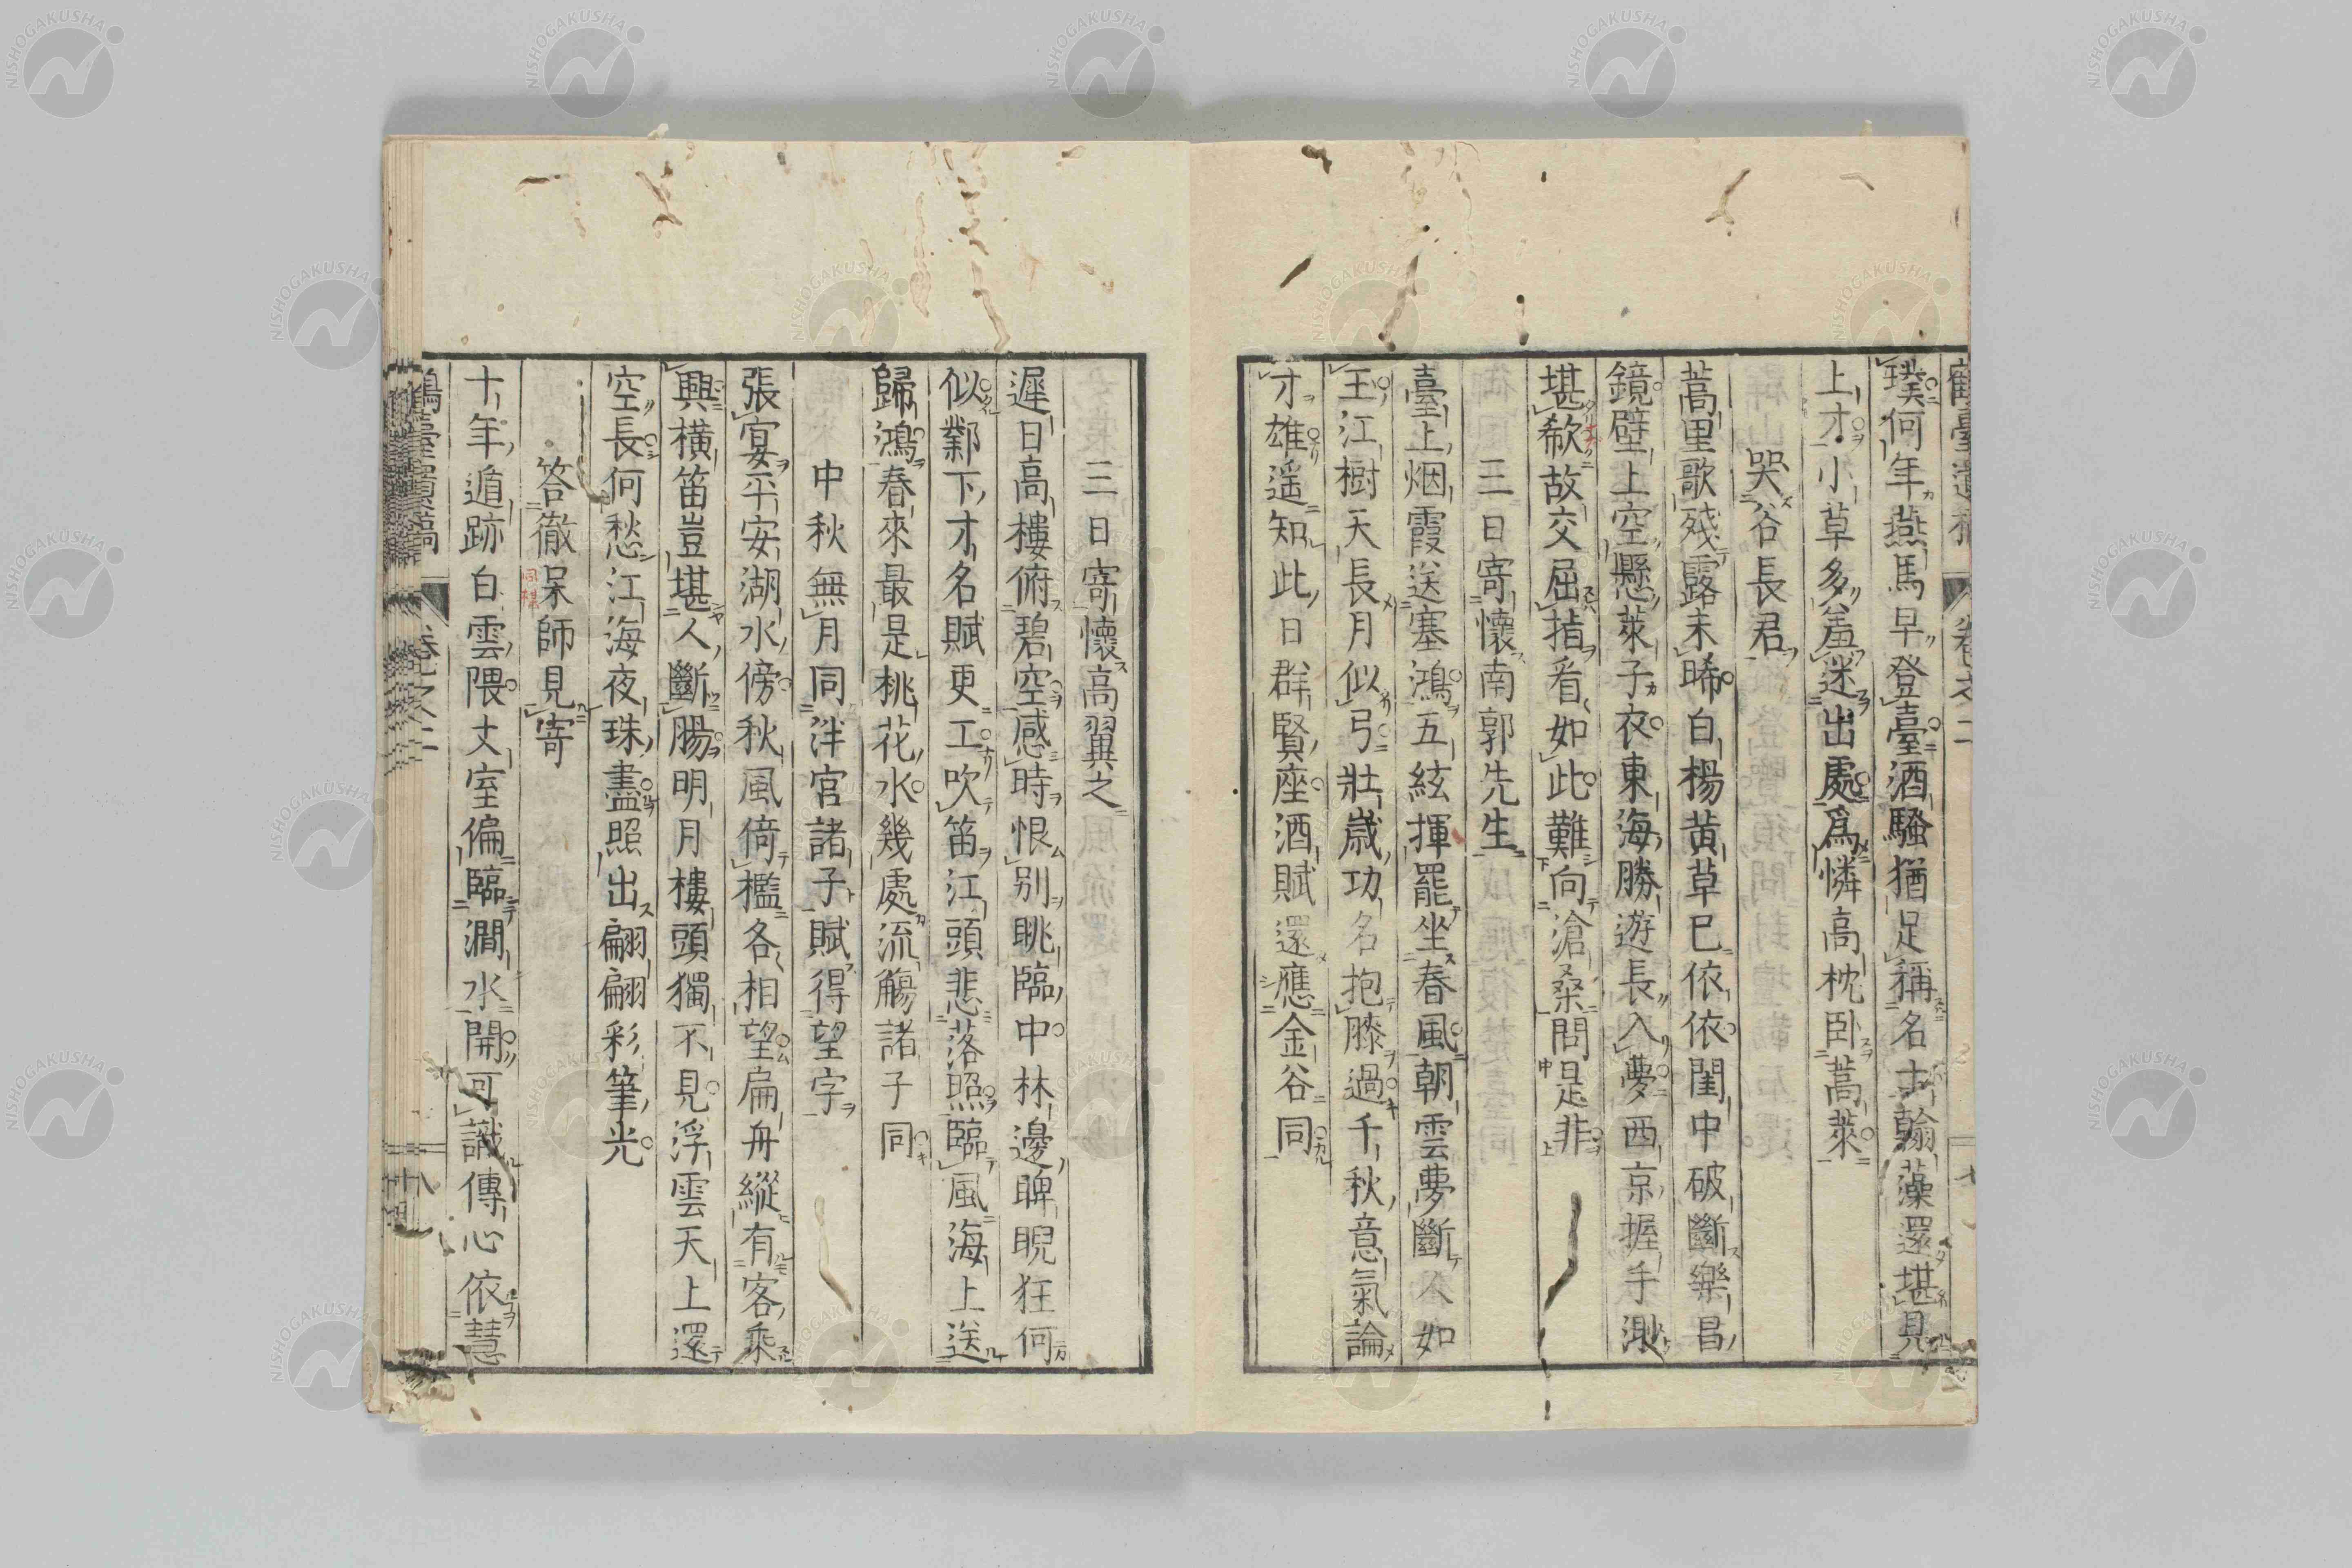 璞何年燕馬早登臺酒騷猶足稱名士翰藻還堪見
上才小草多羞迷出處爲憐高枕卧蒿萊
哭谷長君
蒿里歌殘露未晞白楊黄草已依依閨中破斷樂昌
鏡壁上空懸萊子衣東海勝遊長入夢西京握手渺
堪欷故交屈指看如此難向滄桑問是非
三日寄懷南郭先生
臺上烟霞送塞鴻五絃揮罷坐春風朝雲夢斷人如
玉江樹天長月似弓壯歳功名抱膝過千秋意氣論
才雄遥知此日群賢座酒賦還應金谷同
三日寄懷高翼之
遲日高樓俯碧空感時恨別眺臨中林邊睥睨狂何
似鄴下才名賦更工吹笛江頭悲落照臨風海上送
歸鴻春來最是桃花水幾處流觴諸子同
中秋無月同泮官諸子賦得望字
張宴平安湖水傍秋風倚檻各相望扁舟縱有客乘
興横笛豈堪人斷腸明月樓頭獨不見浮雲天上還
空長何愁江海夜珠盡照出翩翩彩筆光
答徹杲師見寄
十年遁跡白雲隈丈室偏臨澗水開可識傳心依慧